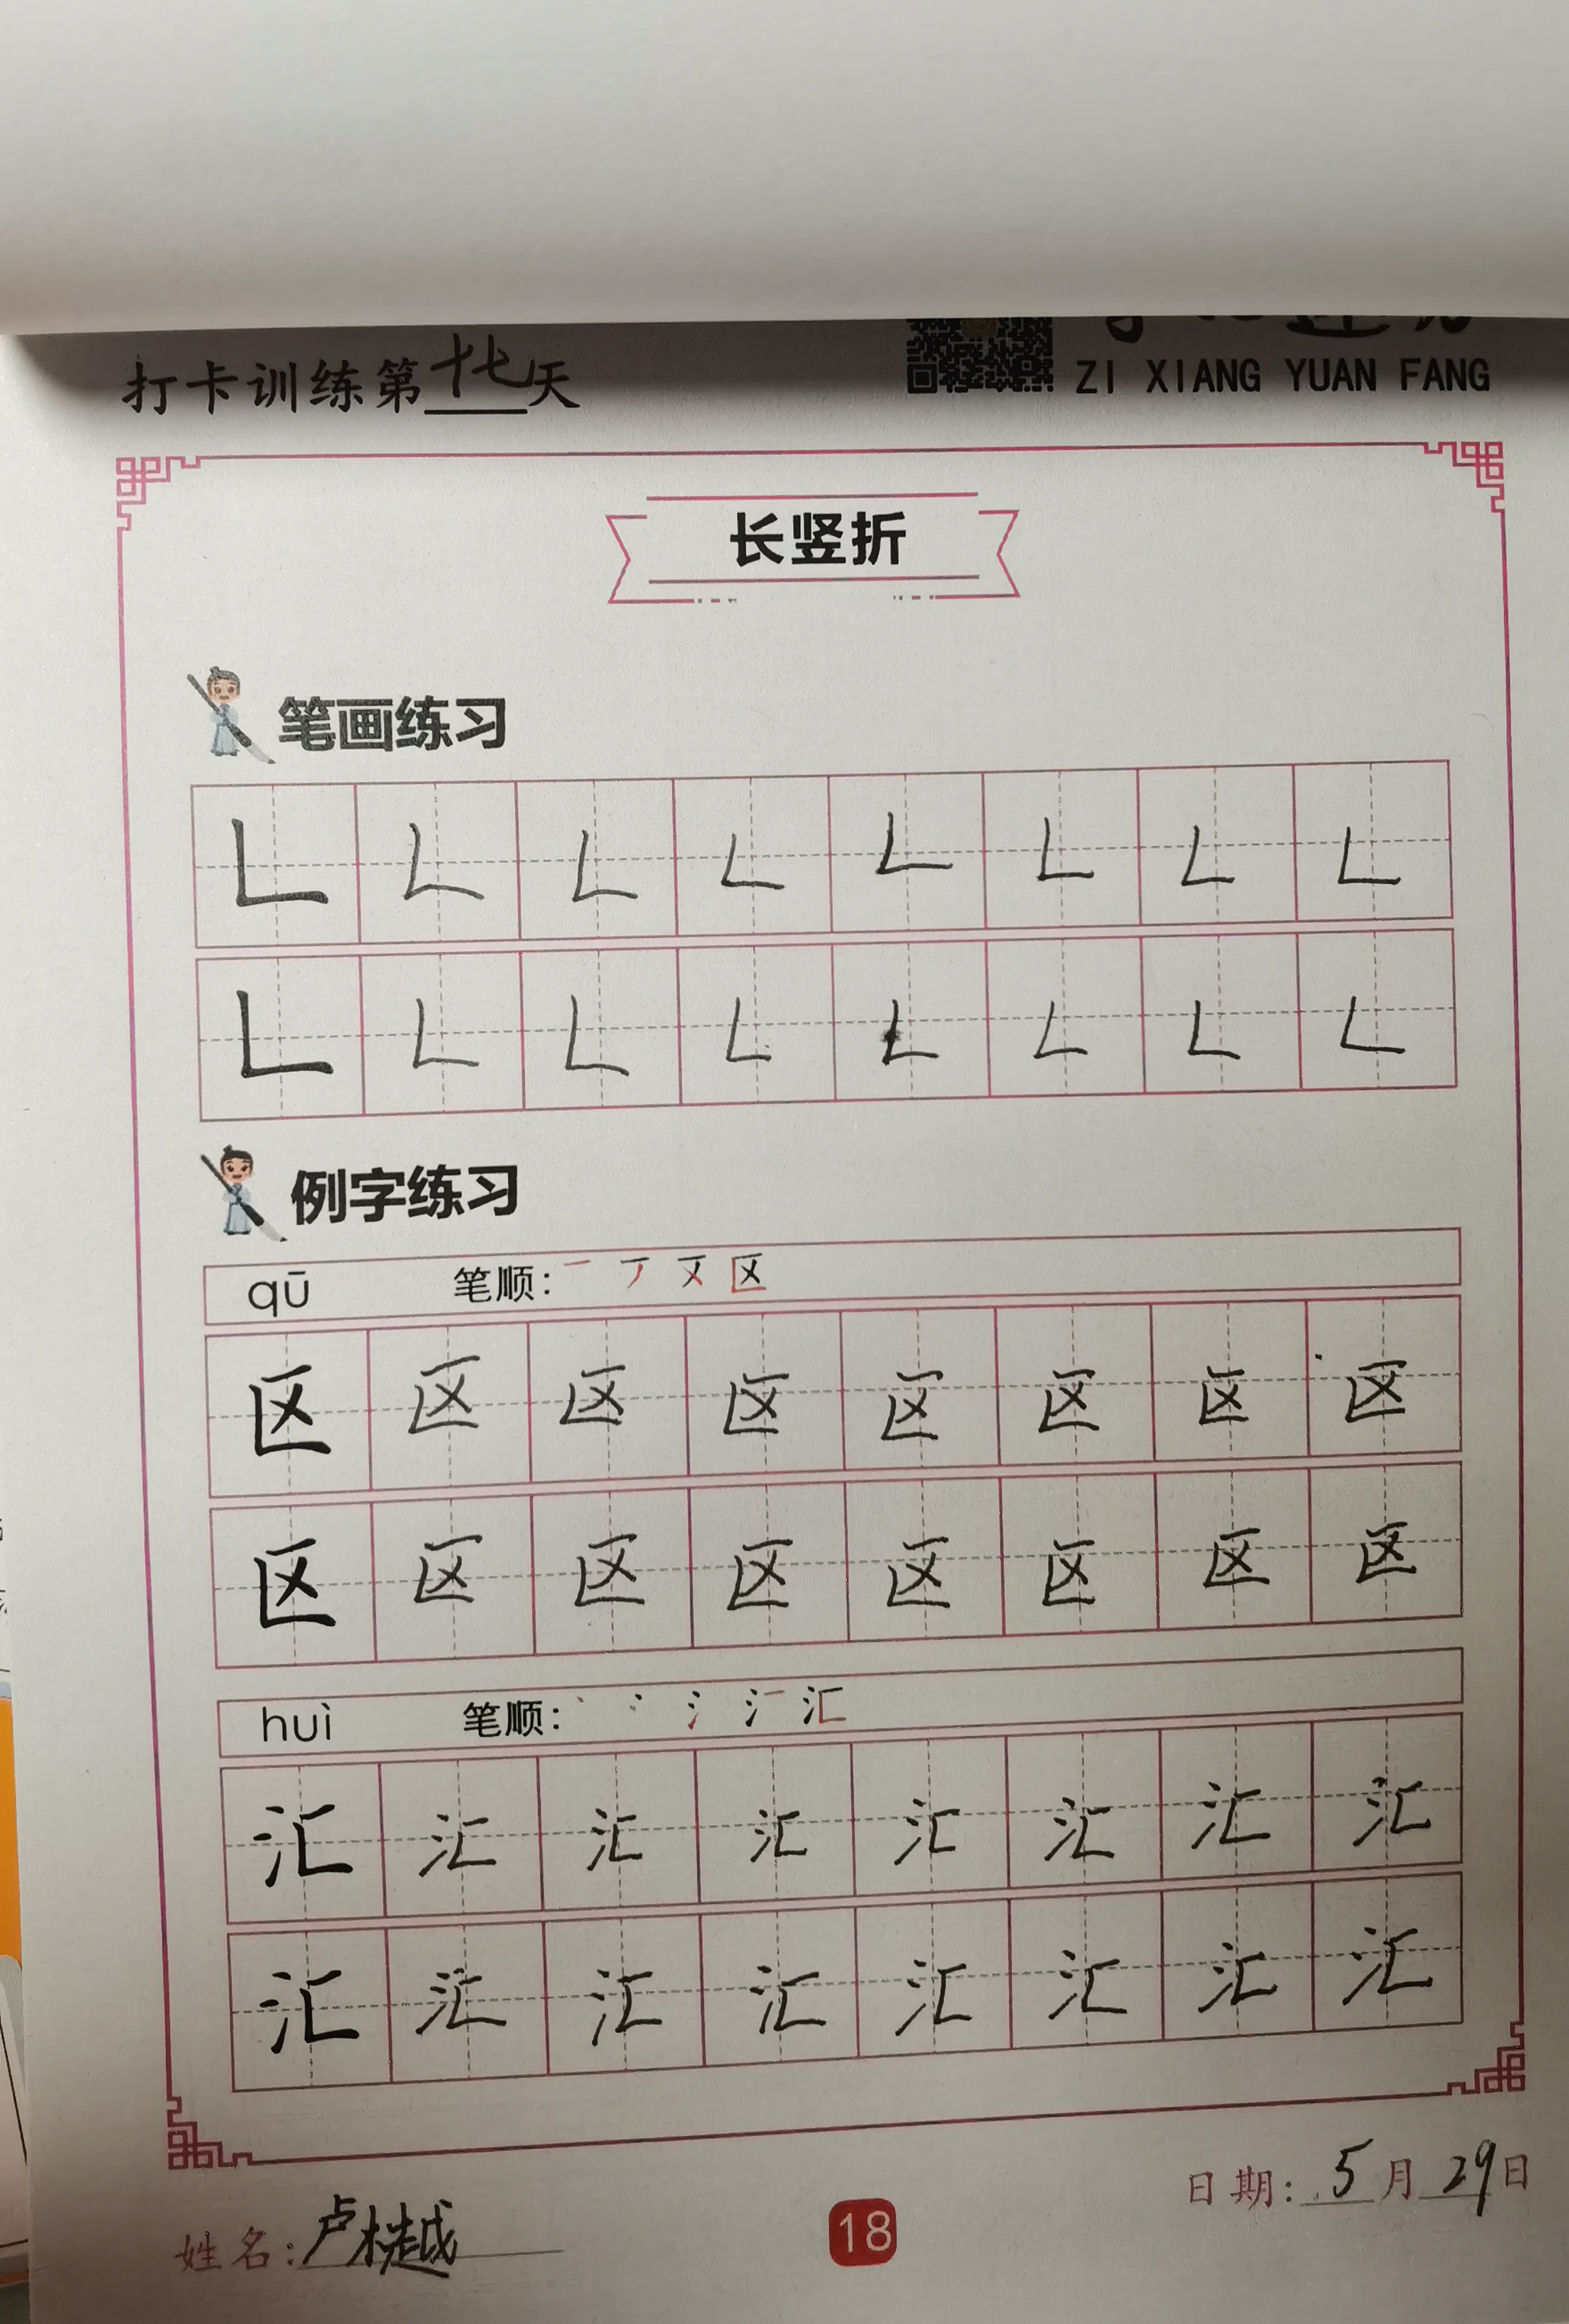 打卡训练第十七天
ZI XIANG YUAN FANG
长竖折
笔画练习
𠃊 𠃊 𠃊 𠃊 𠃊 𠃊 𠃊 𠃊
𠃊 𠃊 𠃊 𠃊 𠃊 𠃊 𠃊 𠃊
例字练习
qū 笔顺: 一 丆 区
区 区 区 区 区 区 区 区
区 区 区 区 区 区 区 区
huì 笔顺: 丶 冫 氵 汇
汇 汇 汇 汇 汇 汇 汇 汇
汇 汇 汇 汇 汇 汇 汇 汇
日期: 5月29日
姓名: 卢 越
18